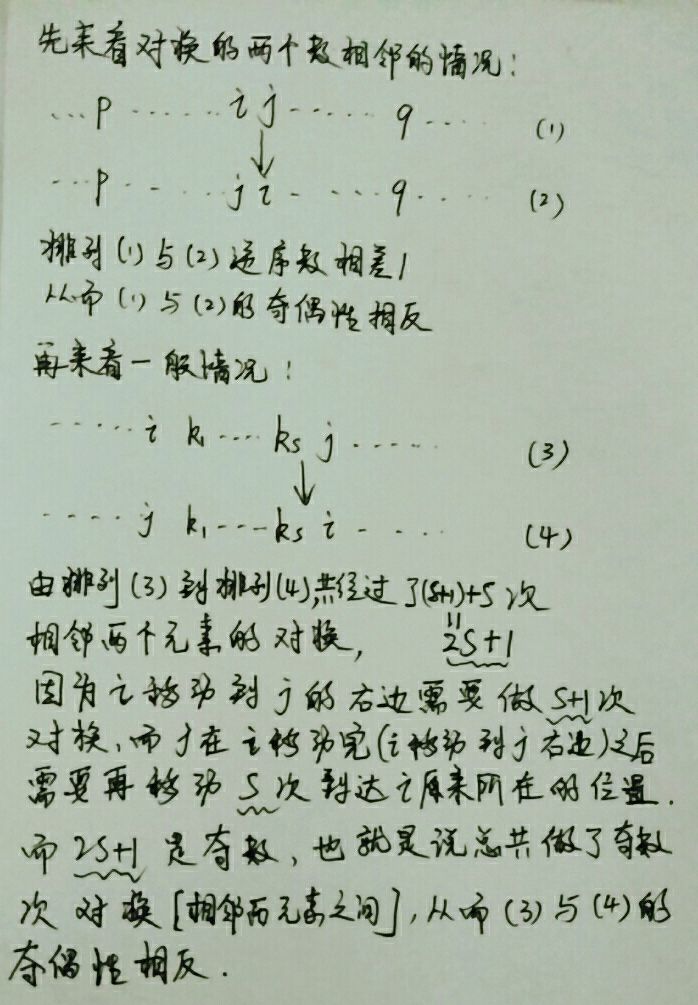 先来看对换的两个数相邻的情况：
…p……i j……q…… (1)
↓
…p……j i……q…… (2)
排列(1)与(2)逆序数相差1
从而(1)与(2)的奇偶性相反
再来看一般情况：
……i k₁……kₛ j…… (3)
↓
……j k₁……kₛ i…… (4)
由排列(3)到排列(4),共经过了(s+1)+s次
相邻两个元素的对换, 2s+1
因为i移动到j的右边需要做s+1次
对换,而j在i移动完(i移动到j右边)之后
需要再移动s次到达i原来所在的位置.
而2s+1是奇数,也就是说总共做了奇数
次对换[相邻两元素之间],从而(3)与(4)的
奇偶性相反.